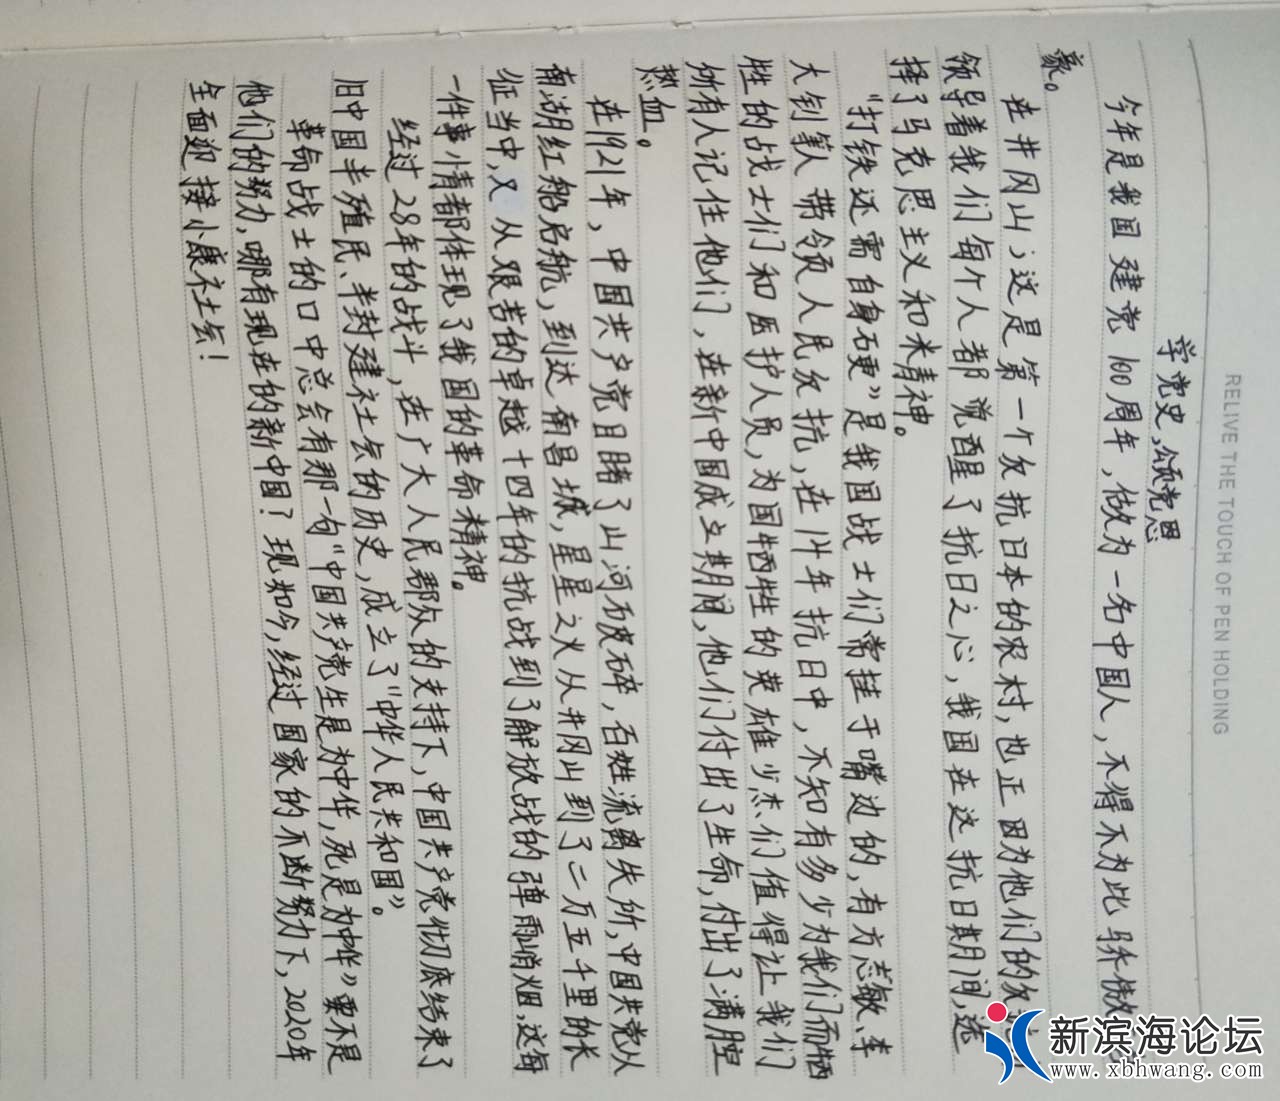 RELIVE THE TOUCH OF PEN HOLDING
学党史,颂党恩
今年是我国建党100周年，做为一名中国人，不得不为此骄傲
豪。
在井冈山；这是第一个反抗日本的农村，也正因为他们的反
领导着我们每个人都觉醒了抗日之心，我国在这抗日期间，选
择了马克思主义和米青神。
“打铁还需自身硬”是我国战士们常挂于嘴边的，有方志敏、李
大钊等人带领人民反抗，在14年抗日中，不知有多少为我们而牺
牲的战士们和医护人员，为国牺牲的英雄少杰们值得让我们
所有人记住他们，在新中国成立期间，他们付出了生命，付出了满腔
热血。
在1921年，中国共产党目睹了山河破碎，百姓流离失所，中国共党从
南湖红船启航，到达南昌城，星星之火从井冈山到了二万五千里的长
征当中，又从艰苦的卓越十四年的抗战到了解放战的弹雨硝烟，这每
一件事情都体现了我国的革命精神。
经过28年的战斗，在广大人民群众的支持下，中国共产党彻底结束了
旧中国半殖民、半封建社会的历史，成立了“中华人民共和国”。
革命战士的口中总会有那一句“中国共产党生是为中华，死是为中华”要不是
他们的努力，哪有现在的新中国？现如今，经过国家的不断努力下，2020年
全面迎接小康社会！
新滨海论坛
www.xbhwang.com